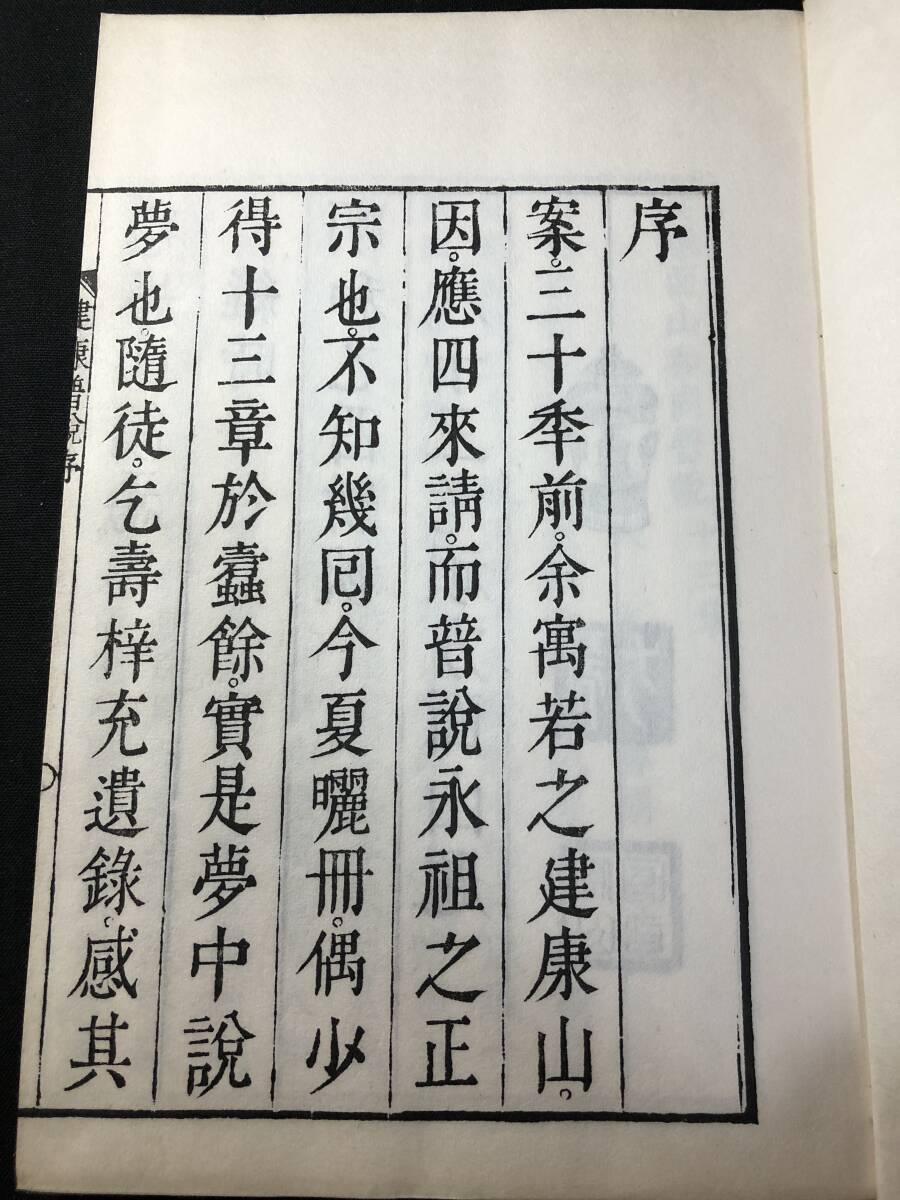 序
案。三十年前。余寓若之建康山。
因。應四來請。而普說永祖之正
宗也。不知幾囘。今夏曬冊。偶少
得十三章於蠹餘。實是夢中說
夢也。隨徒。乞壽梓充遺錄。感其
建康普說序